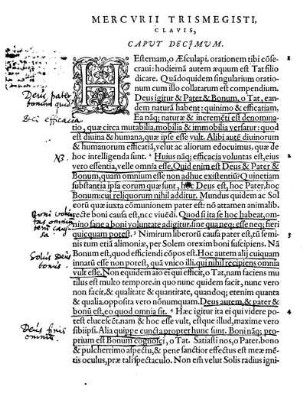 MERCVRII TRISMEGISTI,
CLAVIS,
CAPVT DECIMVM.
HEsternam, o Æsculapi. orationem tibi cõse-
craui: hodiernã autem æquum est Tat filio
dicare. Quãdoquidem singularium oratio-
num cum illo collatarum est compendium.
Deus igitur & Pater & Bonum, o Tat, ean-
dem naturã habent: quinimo & efficaciam.
Ea nãq; naturæ & incremẽti est denomina-
tio, quæ circa mutabilia, mobilia & immobilia versatur: quod
est diuina & humana, quæ ipse esse vult. Alibi autẽ diuinorum
& humanorum efficatiã, velut ac aliorum edocuimus, quæ de
hoc intelligenda sunt. Huius nãq; efficacia voluntas est, eius
vero essentia, velle omnia esse. Quid enim est Deus & Pater &
Bonum, quam omnium esse non adhuc exsistentiũ? Quinetiam
substantia ipsa eorum quæ sunt, hoc Deus est, hoc Pater, hoc
Bonum: cui reliquorum nihil additur. Mundus quidem ac Sol
quoq; iuxta cõmunionem pater est: nõ attamen animalib.
recte boni causa est, nec viuẽdi. Quod si ita se hoc habeat, om-
nino sane a boni voluntate adigitur, sine qua neq; esse neq; fieri
quicquam potest. Nimirum liberorũ causa pater est, tũ semi-
nis tum etiã alimoniæ, per Solem orexim boni suscipiens. Nã
Bonum est, quod efficiendi cõpos est. Hoc autem alij cuiquam
innatũ esse non potest, quã vnico illi, qui nihil recipiens, omnia
vult esse. Non equidem aio ei qui efficit, o Tat, nam faciens mu-
tilus est multo tempore, in quo nunc quidem facit, nunc vero
non facit, & qualitate & quantitate, quandoq; enim quanta
& qualia, opposita vero nõnunquam. Deus autem, & pater &
bonũ est, eo quod omnia sit. Hæc itaq; ita ei qui videre
potest elucescẽt, nam & hoc esse vult, estque illud, maxime vero
sibi ipsi. Alia quippe cuncta propter hunc sunt. Boni nãq; pro-
prium est Bonum cognosci, o Tat. Satiasti nos, o Pater, bono
& pulcherrimo aspectu, & pene sanctior effectus est meæ mẽ-
tis oculus, præ tali spectaculo. Non est velut Solis radius igni-